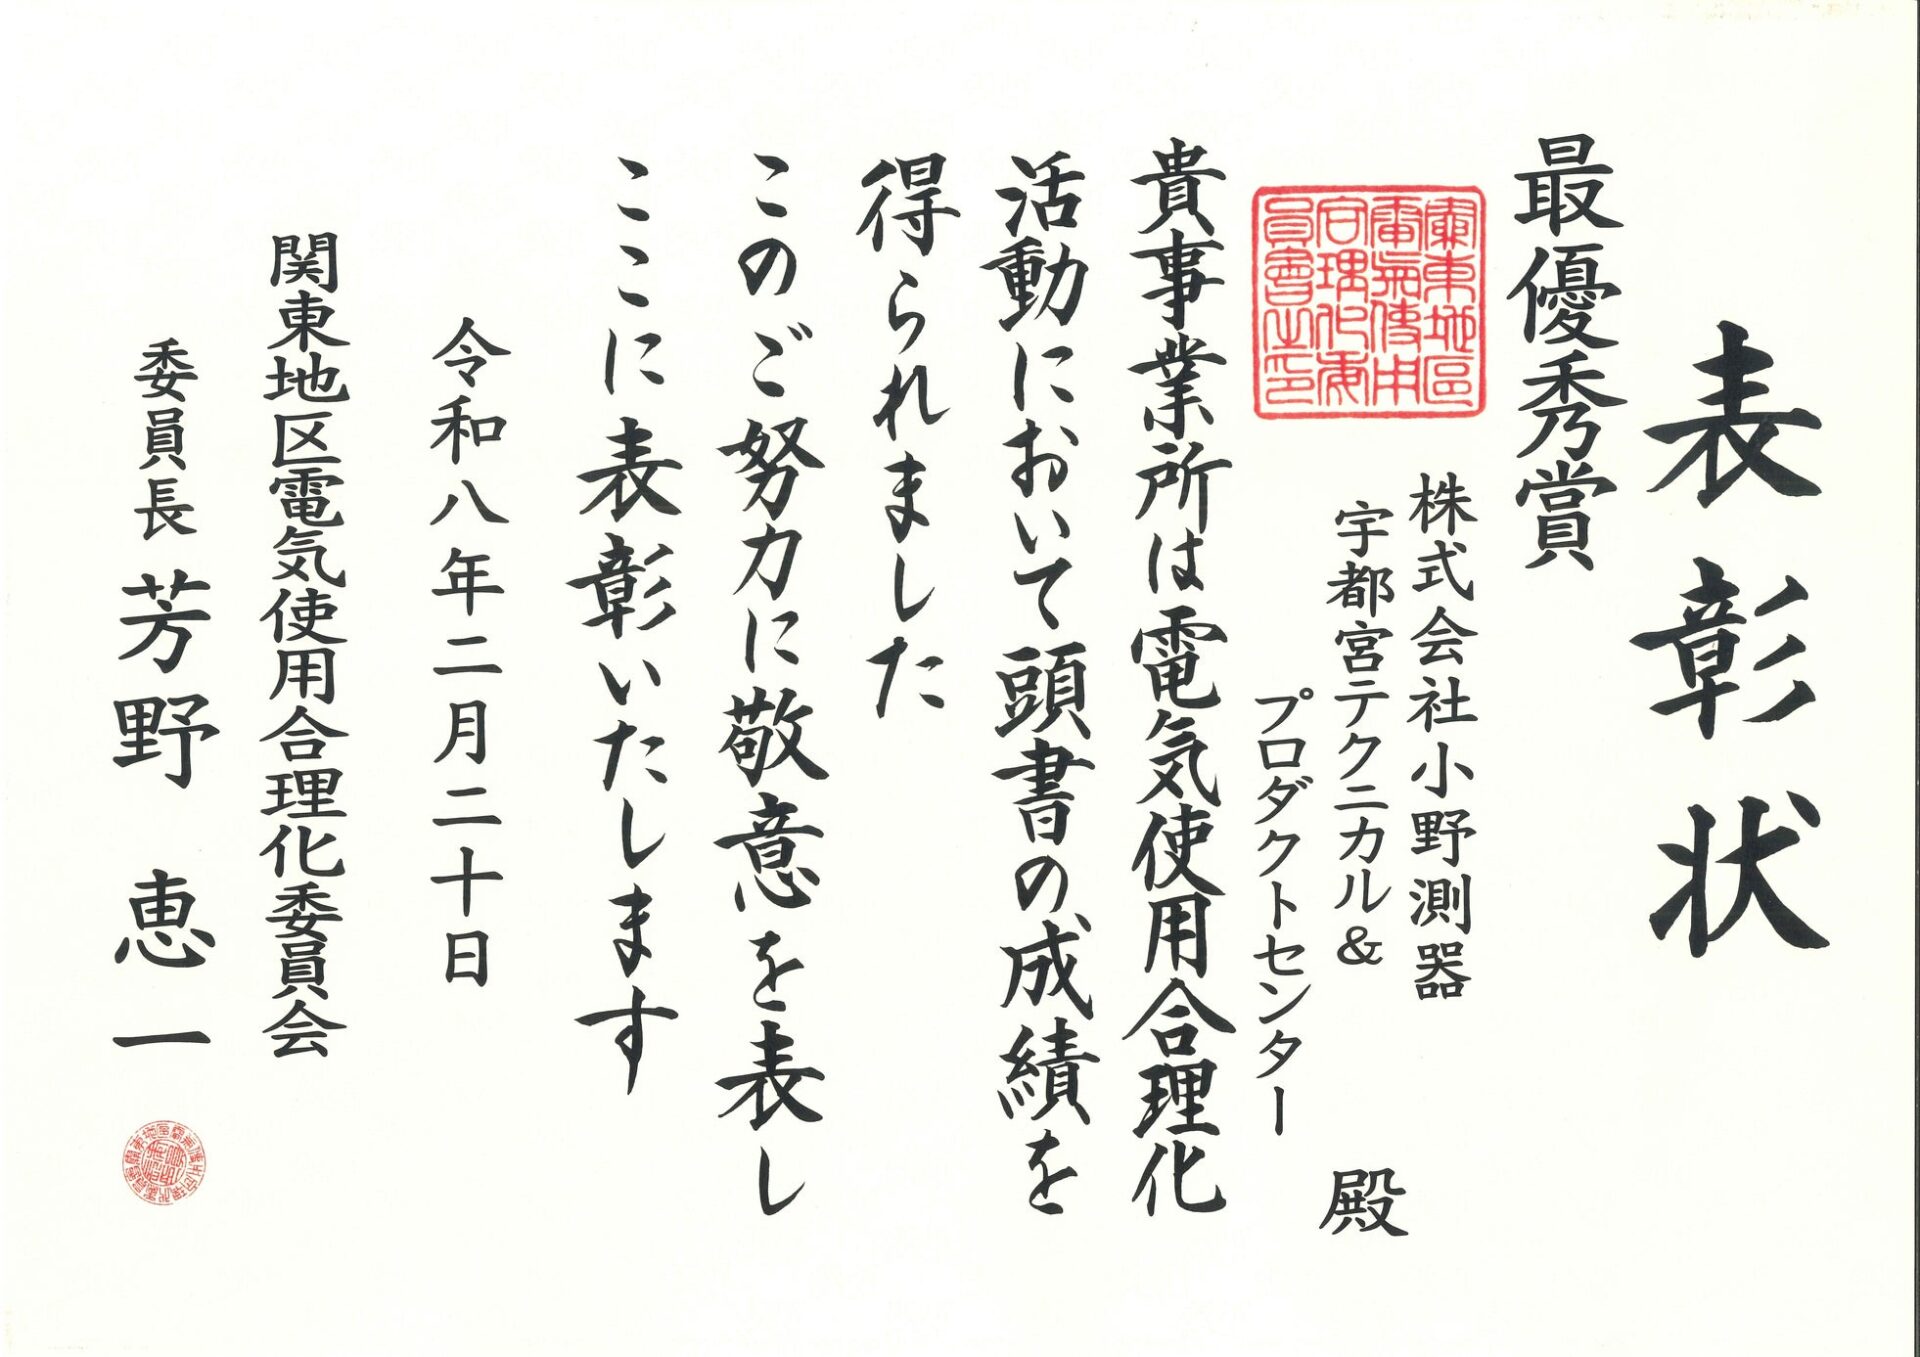 表彰状
最優秀賞
株式会社小野測器
宇都宮テクニカル＆
プロダクトセンター
殿
關東地區
電氣使用
合理化委
員會之印
貴事業所は電気使用合理化
活動において頭書の成績を
得られました
このご努力に敬意を表し
ここに表彰いたします
令和八年二月二十日
関東地区電気使用合理化委員会
委員長 芳野恵一